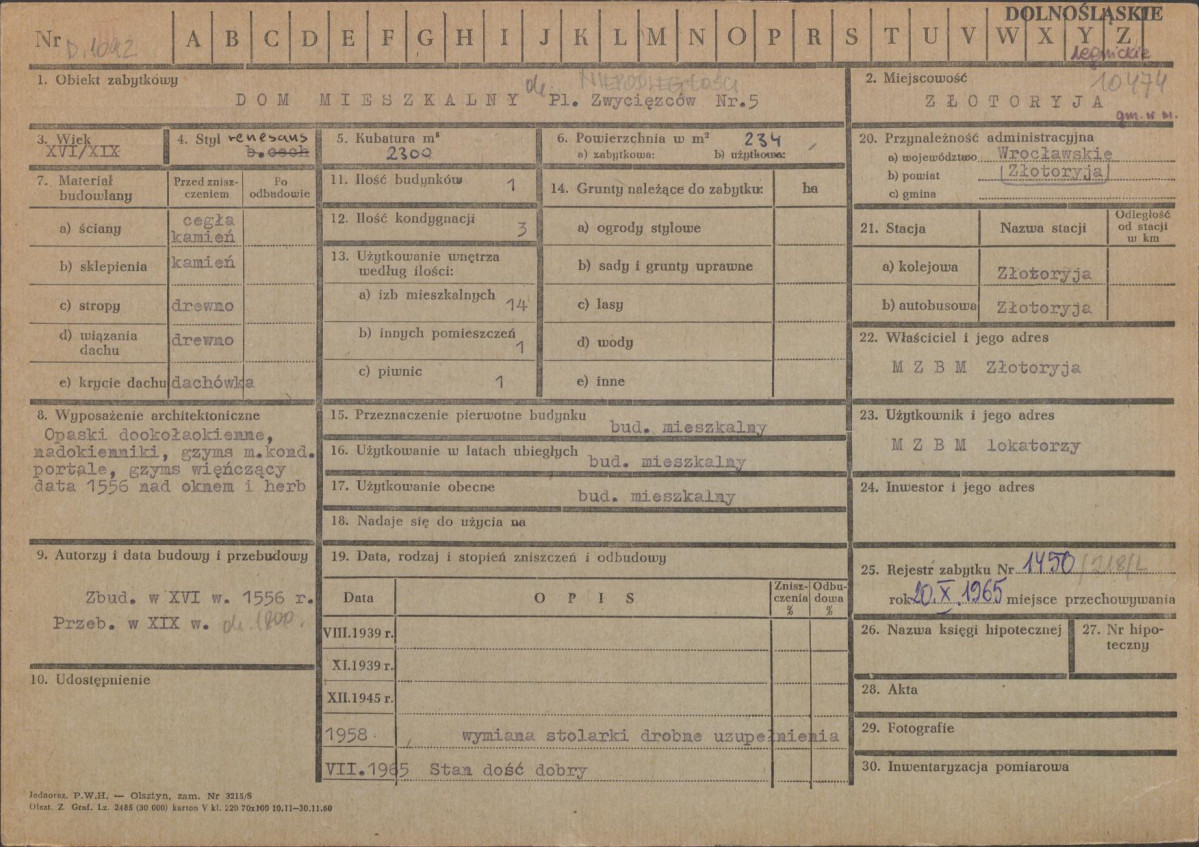 DOLNOŚLĄSKIE
Nr D.1092 A B C D E F G H I J K L M N O P R S T U V W X Y Z
legnickie
1. Obiekt zabytkowy
NIEPODLEGŁOŚCI
DOM MIESZKALNY Pl. Zwycięzców Nr.5
2. Miejscowość
10474
ZŁOTORYJA
gm. w m.
3. Wiek
XVI/XIX
4. Styl renesans
b.cech
5. Kubatura m³
2300
6. Powierzchnia w m² 234
a) zabytkowa: b) użytkowa:
7. Materiał budowlany
Przed zniszczeniem
Po odbudowie
a) ściany cegła kamień
b) sklepienia kamień
c) stropy drewno
d) wiązania dachu drewno
e) krycie dachu dachówka
8. Wyposażenie architektoniczne
Opaski dookołaokienne,
nadokienniki, gzyms m.kond.
portale, gzyms więńczący
data 1556 nad oknem i herb
9. Autorzy i data budowy i przebudowy
Zbud. w XVI w. 1556 r.
Przeb. w XIX w. ok. 1800.
10. Udostępnienie
11. Ilość budynków 1
12. Ilość kondygnacji 3
13. Użytkowanie wnętrza
według ilości:
a) izb mieszkalnych 14
b) innych pomieszczeń 1
c) piwnic 1
14. Grunty należące do zabytku: ha
a) ogrody stylowe
b) sady i grunty uprawne
c) lasy
d) wody
e) inne
15. Przeznaczenie pierwotne budynku
bud. mieszkalny
16. Użytkowanie w latach ubiegłych bud. mieszkalny
17. Użytkowanie obecne bud. mieszkalny
18. Nadaje się do użycia na
19. Data, rodzaj i stopień zniszczeń i odbudowy
Data OPIS Zniszczenia % Odbudowa %
VIII.1939 r.
XI.1939 r.
XII.1945 r.
1958 wymiana stolarki drobne uzupełnienia
VII.1965 Stan dość dobry
20. Przynależność administracyjna
a) województwo Wrocławskie
b) powiat Złotoryja
c) gmina
21. Stacja Nazwa stacji Odległość od stacji w km
a) kolejowa Złotoryja
b) autobusowa Złotoryja
22. Właściciel i jego adres
M Z B M Złotoryja
23. Użytkownik i jego adres
M Z B M lokatorzy
24. Inwestor i jego adres
25. Rejestr zabytku Nr 1450/218/L
rok 20.X.1965 miejsce przechowywania
26. Nazwa księgi hipotecznej
27. Nr hipoteczny
28. Akta
29. Fotografie
30. Inwentaryzacja pomiarowa
Jednoraz. P.W.H. — Olsztyn, zam. Nr 3215/S
Olszt. Z. Graf. Lz. 2485 (30 000) karton V kl. 220 70x100 10.11—30.11.60